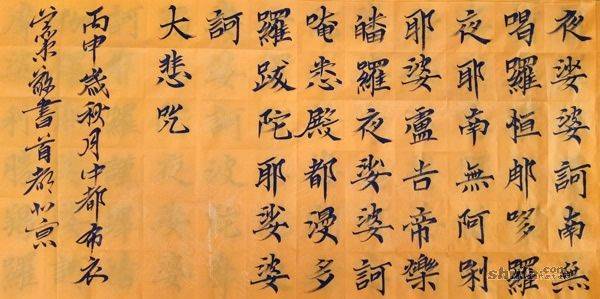 夜娑婆訶南無
喝羅恒那哆羅
夜耶南無阿唎
耶婆盧吉帝爍
皤羅夜娑婆訶
唵悉殿都漫多
羅跋陀耶娑婆
訶
大悲咒
丙申歲秋月中都布衣
敬書首都北京